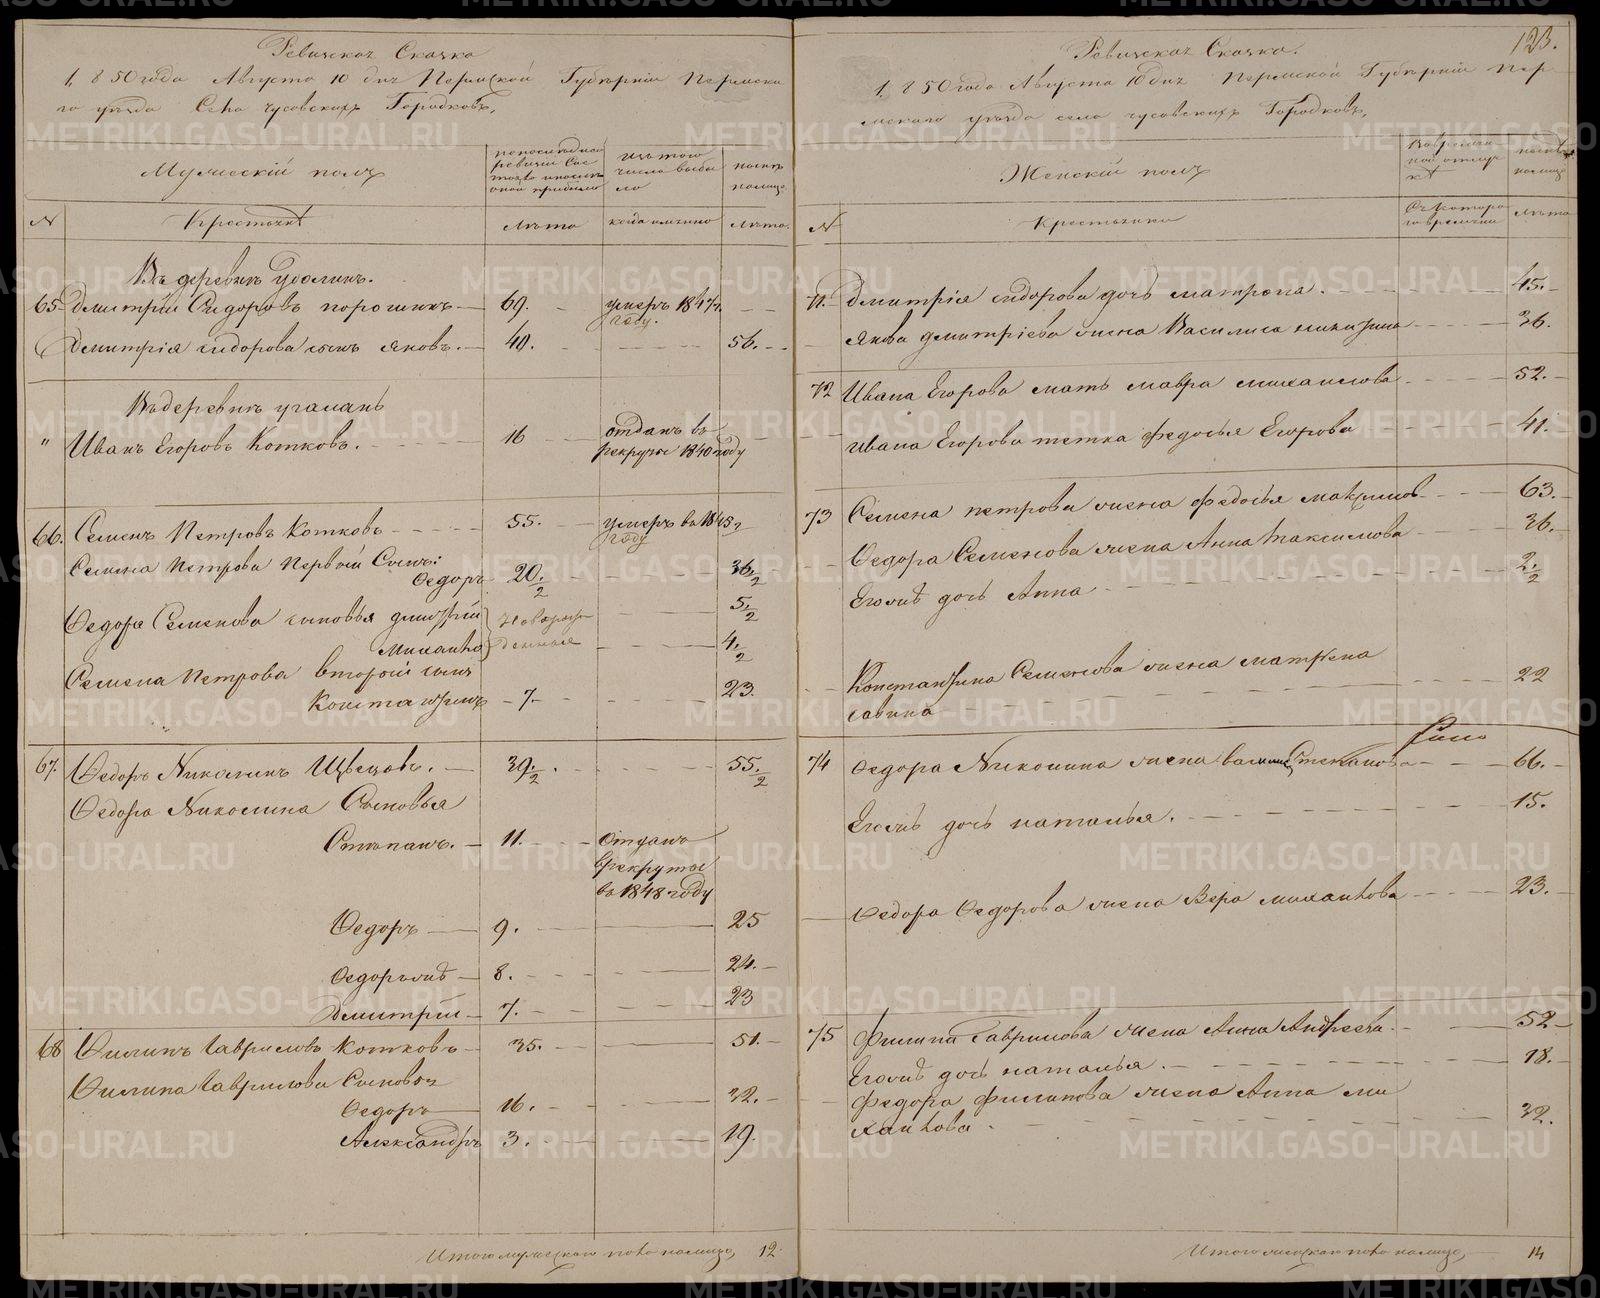 Ревижская Сказка
1850 года Августа 10 дня Пермской Губерніи Пермска
го уезда Села чусовскихъ Городковъ,
Мужескій полъ
по последней ревизіи
изъ того числа выбы
ло
ныне
налицо
N
Крестьяне
лета
когда именно
лета
Въ деревне
65 Дмитрій Сидоровъ порошинъ 69. умеръ 1847
году.
Дмитрія сидорова сынъ яковъ. 40. 56.
Въ деревне
" Иванъ Егоровъ Котковъ. 16 отданъ въ
рекруты 1840 году
66. Семенъ Петровъ Котковъ 55. умеръ въ 1845
году
Семена Петрова Первой Сынъ:
Федоръ 20 1/2 36 1/2
Федора Семенова сыновья дмитрій новорож 5 1/2
Михаило денныя 4 1/2
Семена Петрова второй сынъ
Константинъ 7. 23.
67. Федоръ Никонинъ Швецовъ. 39 1/2. 55 1/2
Федора Никонина Сыновья
Степанъ. 11. Отданъ
в рекруты
въ 1848 году
Федоръ 9. 25
Федоръ же 8. 24.
Дмитрій 7. 23
68 Филипъ Гавриловъ Котковъ 35. 51.
Филипа Гаврилова Сыновья
Федоръ 16. 32.
Александръ 3. 19.
Итого мужеска пола налицо 12.
123.
Ревижская Сказка.
1850 года Августа 10 дня Пермской Губерніи Пер
мскаго уезда села чусовскихъ Городковъ,
Женскій полъ
Во времен
ной отлуч
ке
ныне
налицо
N
Крестьянки
Съ котора
го времени
лета
71. Дмитрія сидорова дочь матрена. 45.
Якова дмитріева жена Василиса никитина 36.
72 Ивана Егорова мать мавра михаилова 52.
Ивана Егорова тетка федосья Егорова 41.
73 Семена петрова жена федосья максимов 63.
Федора Семенова жена Анна максимова 36.
Его же дочь Анна 2 1/2
Константина Семенова жена матрена
савина 22
74 Федора Никонина жена Степанова 66.
Его же дочь наталья. 15.
Федора Федорова жена Вера михаилова 23.
75 Филипа Гаврилова жена Анна Андреева. 52
Его же дочь наталья. 18.
Федора филипова жена Анна ми
хаилова. 32.
Итого женска пола налицо 14
METRIKI.GASO-URAL.RU